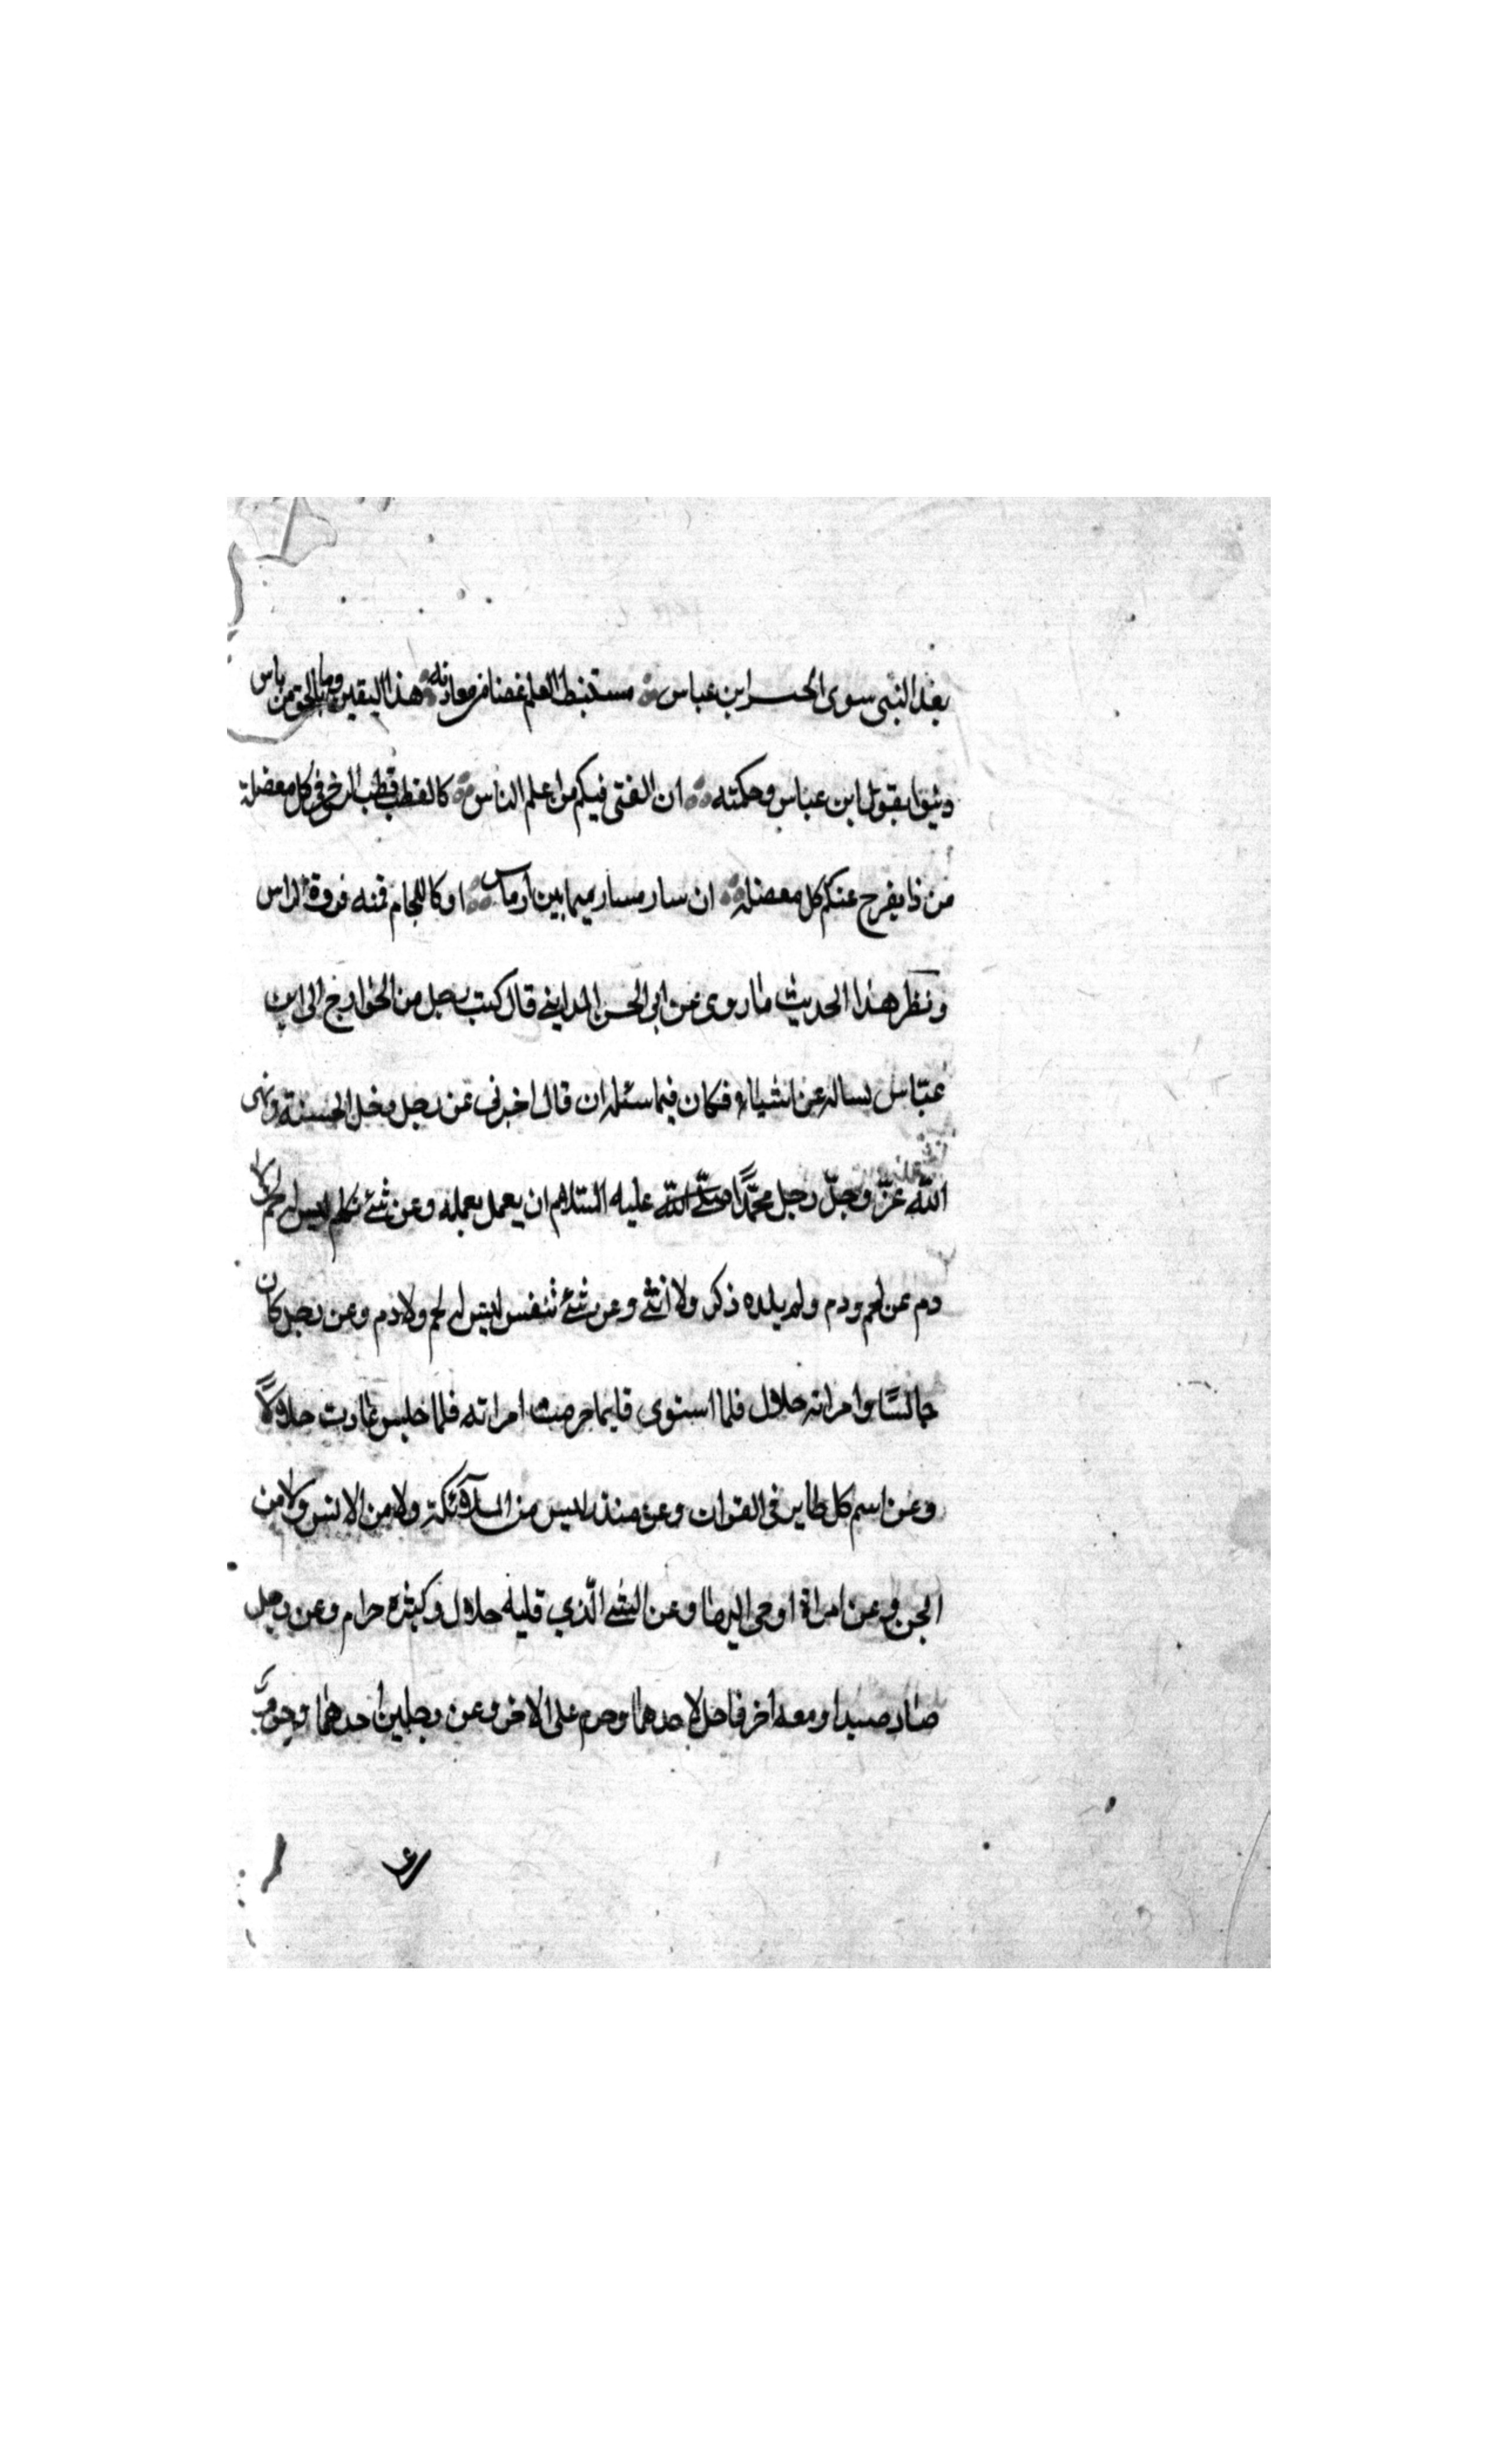 بعد النبى سوى الحبر ابن عباس مستنبط العلم غضا من معادنه هذا اليقين وما بالحق من باس
دينوا بقول ابن عباس وحكمته ان الفتى فيكم من اعلم الناس كالقطب قطب الرحى فى كل معضلة
من ذا يفرج عنكم كل معضلة ان سار مسار ميما بين ارماس او كاللجام فنه فروة الراس
ونظر هذا الحديث ما روى عن ابى الحسن المداينى قال كتب رجل من الخوارج الى ابن
عباس يساله عن اشياء فكان فيما سئله ان قال اخبرنى عن رجل دخل الجنة ونهى
الله عز وجل محمدا صلى الله عليه السلام ان يعمل بعمله وعن شئ تكلم ليس له لحم ولا
دم عن لحم ودم ولم يلده ذكر ولا انثى وعن شئ تنفس ليس له لحم ولا دم وعن رجل كان
جالسا وامراته حلال فلما استوى قايما حرمت امراته فلما جلس عادت حلالا
وعن اسم كل طاير فى القران وعن منذر ليس من الملائكة ولا من الانس ولا من
الجن وعن امراة اوحى اليها وعن الشئ الذي قليله حلال وكثيره حرام وعن رجل
صاد صيدا ومعه اخر فاحل لاحدهما وحرم على الاخر وعن رجلين احدهما